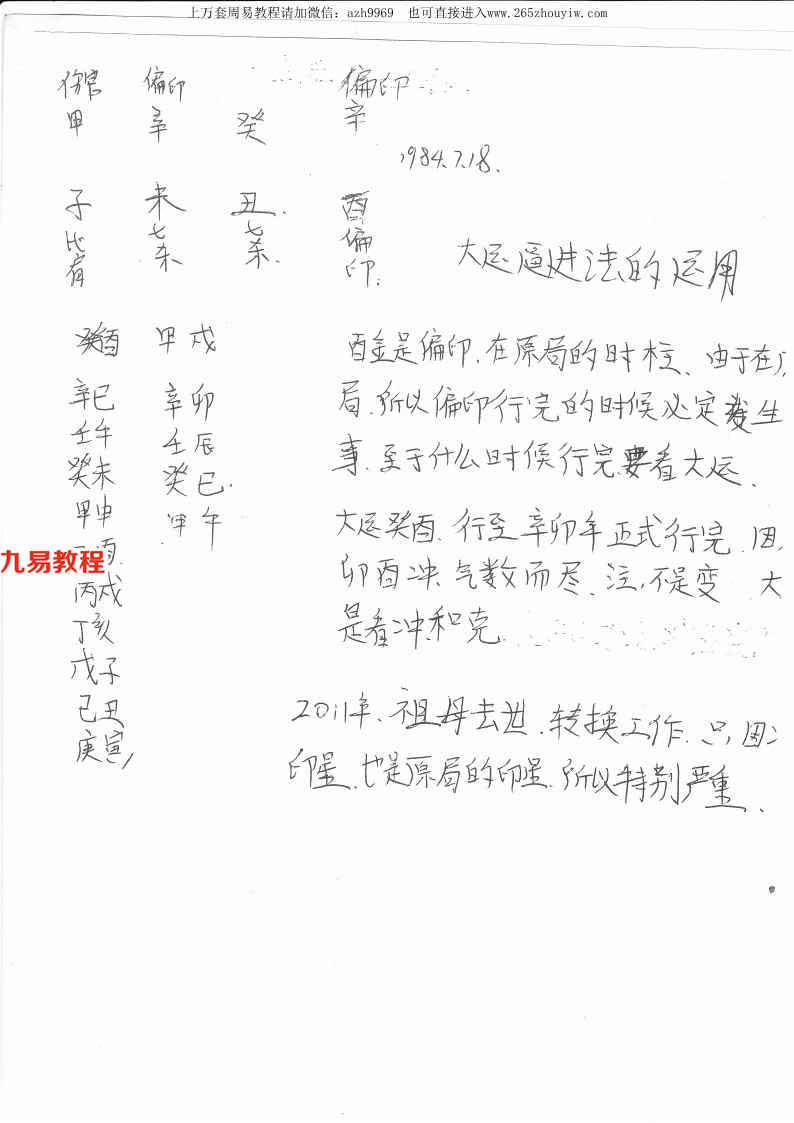 上万套周易教程请加微信：azh9969 也可直接进入www.265zhouyiw.com
伤官 偏印 偏印
甲 辛 癸 辛
1984.7.18.
子 未 丑. 酉
比肩 七杀 七杀. 偏印.
大运逼进法的运用
癸酉 甲戌
酉金是偏印.在原局的时柱、由于在
辛巳 辛卯
局.所以偏印行完的时候必定发生
壬午 壬辰
癸未 癸巳.
事.至于什么时候行完要看大运.
甲申 甲午
大运癸酉.行至辛卯年正式行完.因
酉
九易教程
卯酉冲、气数而尽、注,不是变 大
丙戌
丁亥
是看冲和克
戊子
己丑
2011年、祖母去世.转换工作.只因
庚寅
印星.也是原局的印星.所以特别严重.